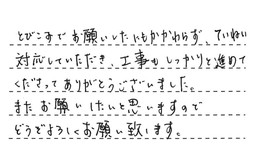 とびこみでお願いしたにもかかわらず、ていねい
対応していただき、工事もしっかりと進めて
くださってありがとうございました。
またお願いしたいと思いますので
どうぞよろしくお願い致します。